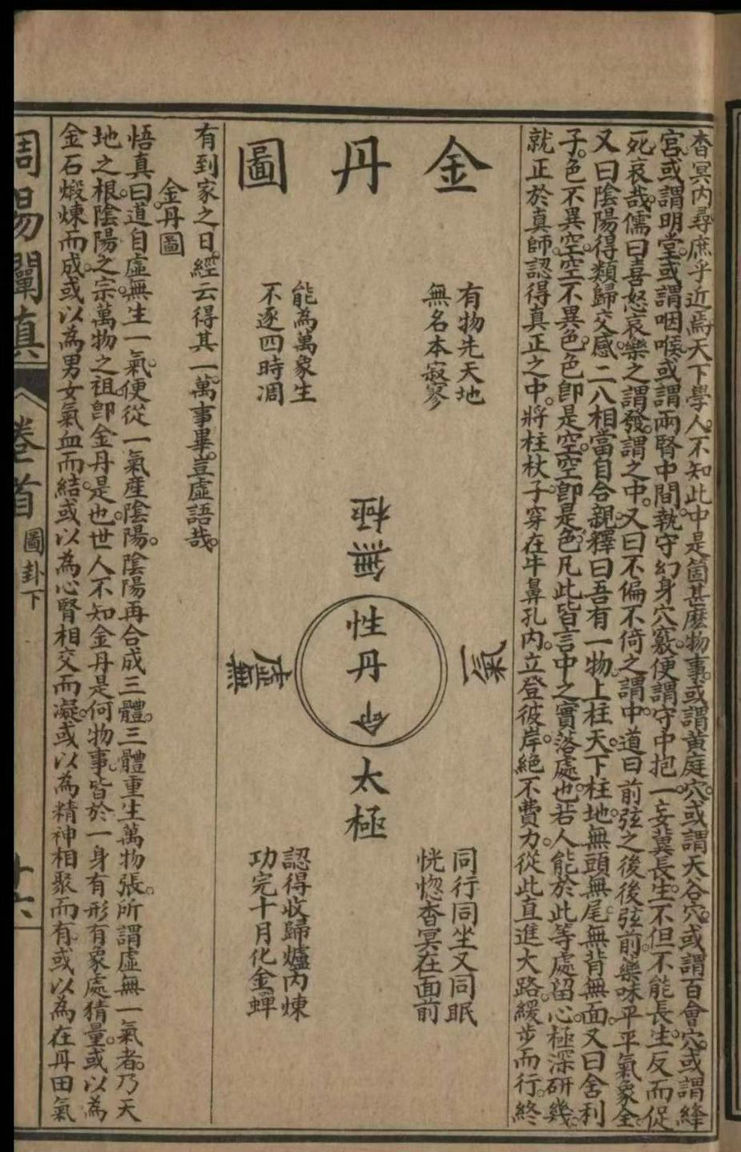 杳冥內尋庶乎近焉天下學人不知此中是箇甚麼物事或謂黃庭穴或謂天谷穴或謂百會穴或謂絳
宮或謂明堂或謂咽喉或謂兩腎中間執守幻身穴竅便謂守中抱一妄冀長生不但不能長生反而促
死哀哉儒曰喜怒哀樂之謂發謂之中又曰不偏不倚之謂中道曰前弦之後後弦前藥味平平氣象全
又曰陰陽得類歸交感二八相當自合親釋曰吾有一物上柱天下柱地無頭無尾無背無面又曰舍利
子色不異空空不異色色卽是空空卽是色凡此皆言中之實落處也若人能於此等處留心極深研幾
就正於真師認得真正之中將柱杖子穿在牛鼻孔內立登彼岸絕不費力從此直進大路緩步而行終
金丹圖
有物先天地
無名本寂寥
能為萬象生
不逐四時凋
無極
性
丹
命
虛無
太極
同行同坐又同眠
恍惚杳冥在面前
認得收歸爐內煉
功完十月化金蟬
有到家之日經云得其一萬事畢豈虛語哉
金丹圖
悟真曰道自虛無生一氣便從一氣產陰陽陰陽再合成三體三體重生萬物張所謂虛無一氣者乃天
地之根陰陽之宗萬物之祖卽金丹是也世人不知金丹是何物事皆於一身有形有象處猜量或以為
金石煅煉而成或以為男女氣血而結或以為心腎相交而凝或以為精神相聚而有或以為在丹田氣
周易闡真
卷首
圖卦下
十六